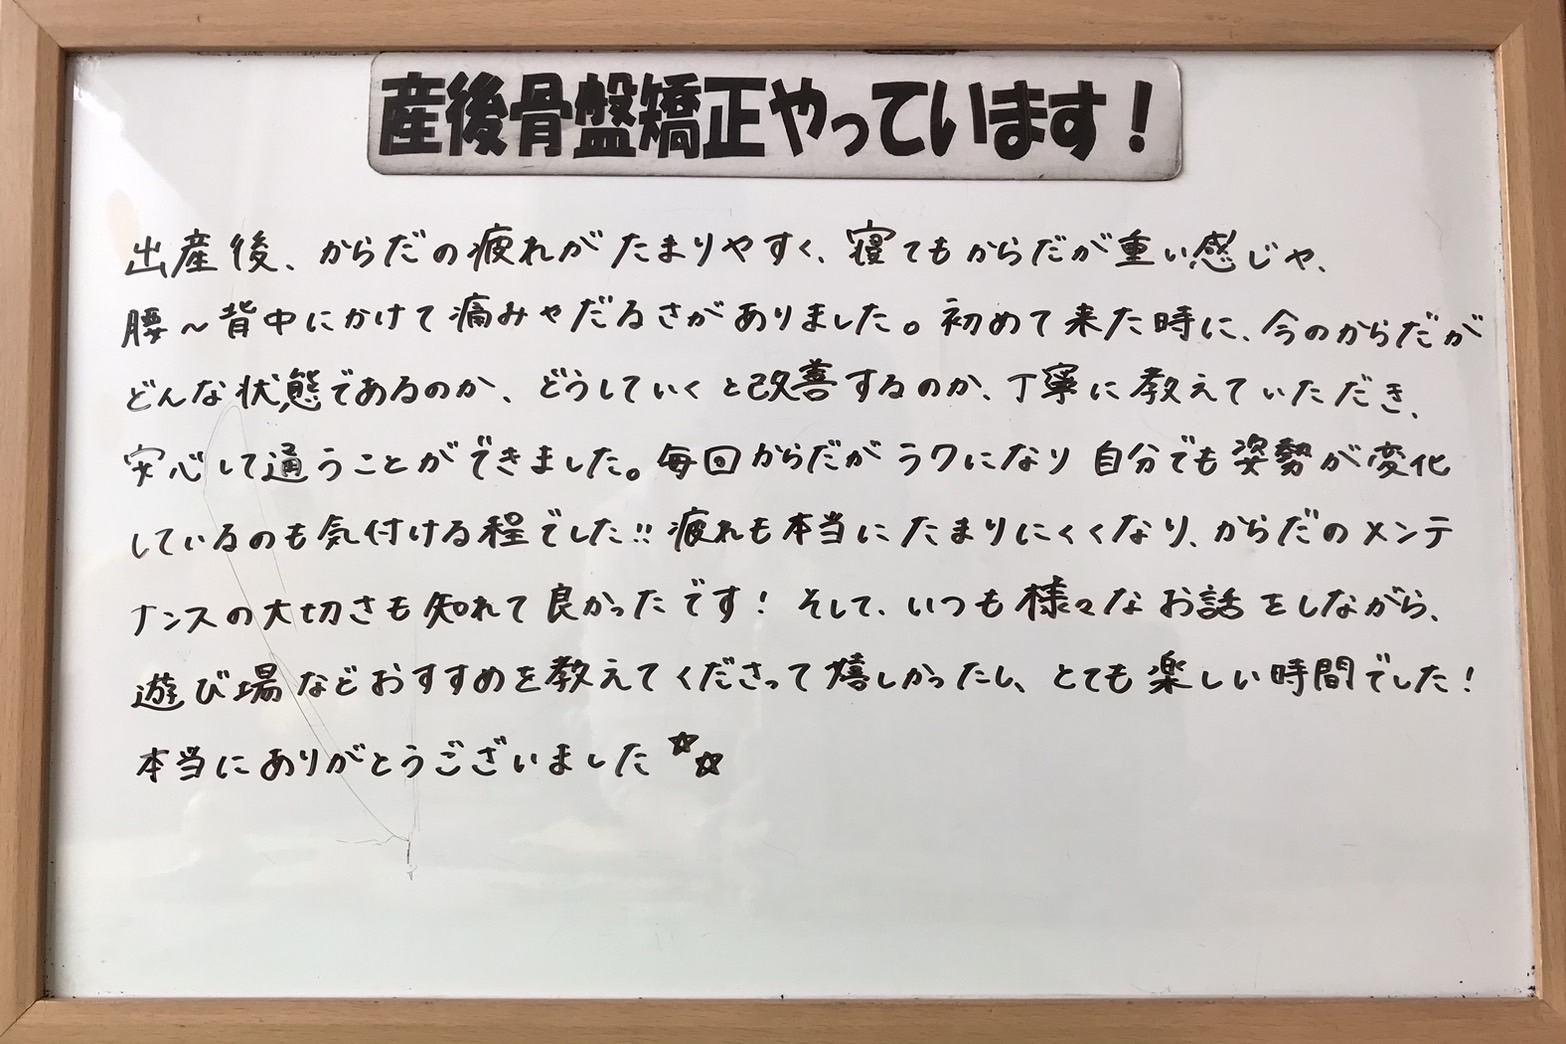 産後骨盤矯正やっています！
出産後、からだの疲れがたまりやすく、寝てもからだが重い感じや、
腰〜背中にかけて痛みやだるさがありました。初めて来た時に、今のからだが
どんな状態であるのか、どうしていくと改善するのか、丁寧に教えていただき、
安心して通うことができました。毎回からだがラクになり 自分でも姿勢が変化
しているのも気付ける程でした!! 疲れも本当にたまりにくくなり、からだのメンテ
ナンスの大切さも知れて良かったです！ そして、いつも様々なお話をしながら、
遊び場などおすすめを教えてくださって嬉しかったし、とても楽しい時間でした！
本当にありがとうございました☆☆